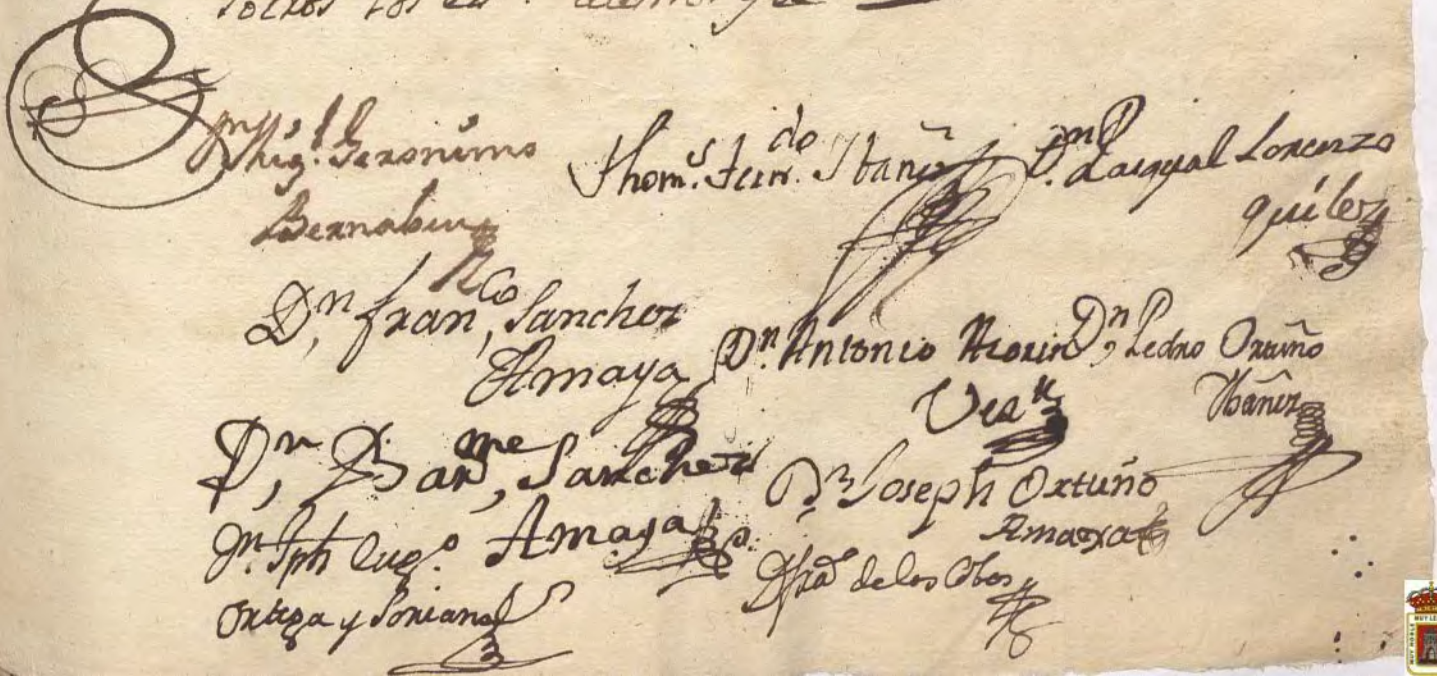 Mig.l Geronimo
Bernabeu
Thom.s Fern.do Ybañez
D.n Pasqual Lorenzo
quilez
D.n fran.co Sanchez
Amaya
D.n Antonio
D.n Pedro Ortuño
Ybañez
D.n Bar.me Sanchez
Amaya
D.n Joseph Ortuño
Amaya
D.n Jph Eug.o
Ortega y Soriano
de los Cobos
MUY NOBLE